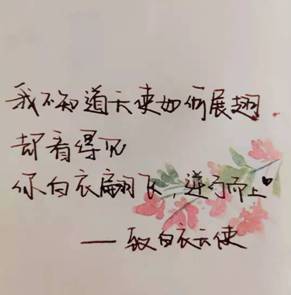 我不知道天使如何展翅
却看得见
你白衣翩飞，逆行而上
——致白衣天使